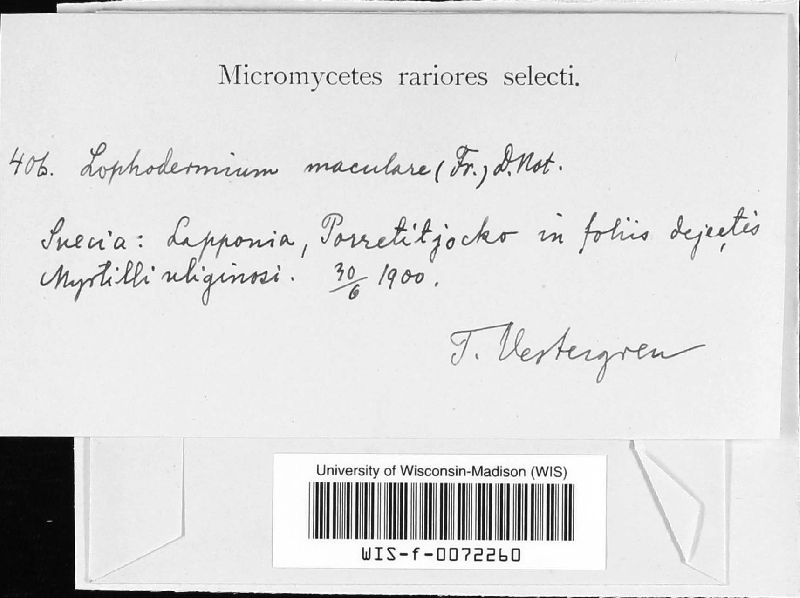 Micromycetes rariores selecti.
406. Lophodermium maculare (Fr.) D. Not.
Suecia: Lapponia, Porretitjocko in foliis dejectis
Myrtilli uliginosi. 30/6 1900.
T. Vestergren
University of Wisconsin-Madison (WIS)
WIS-f-0072260